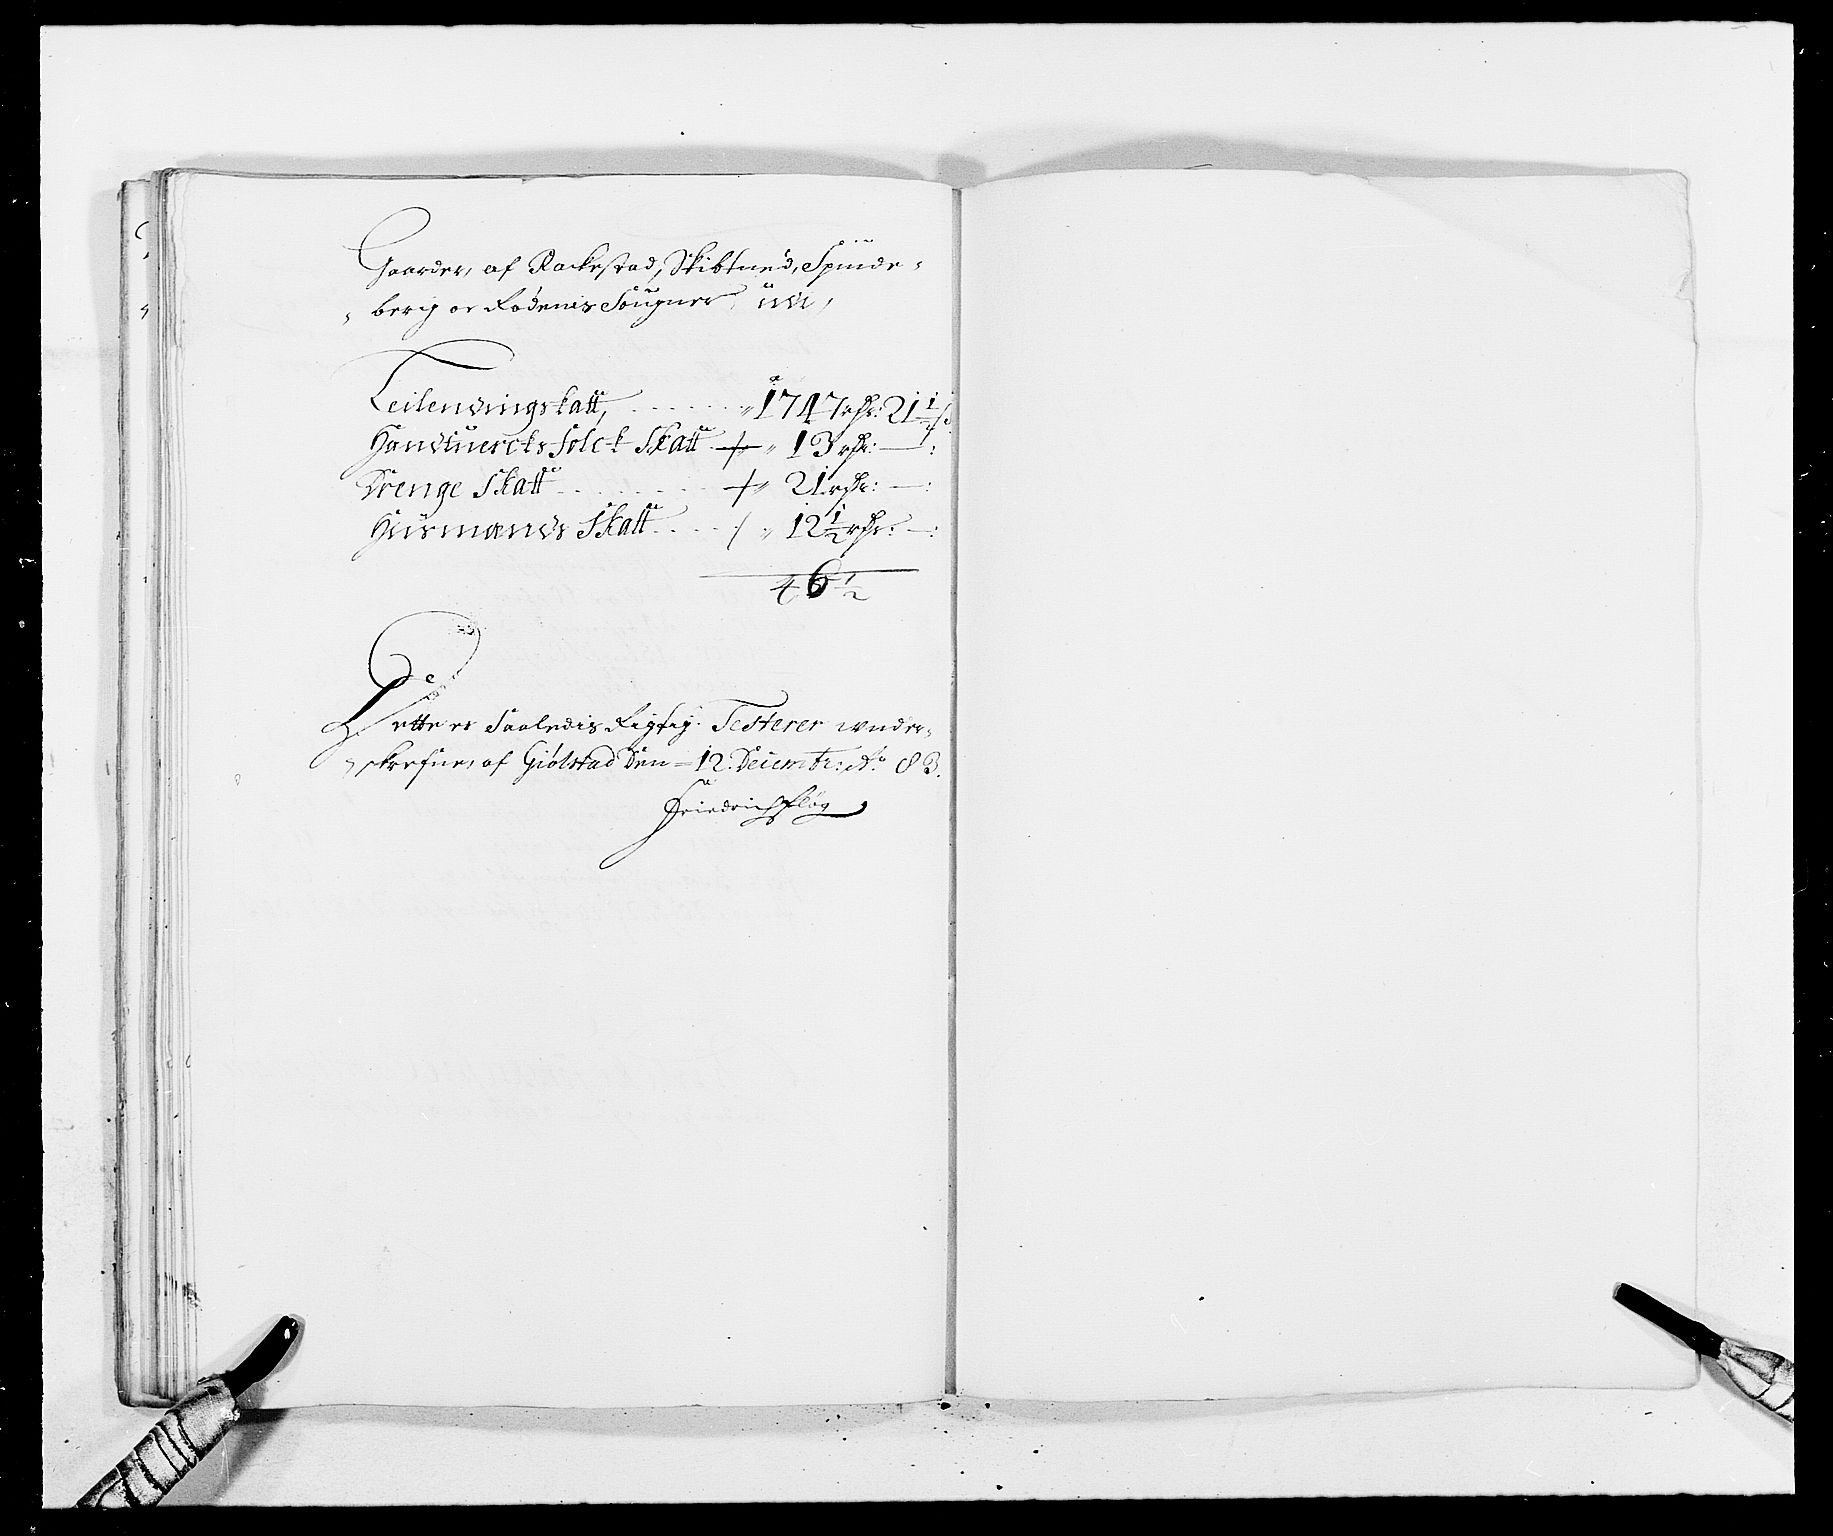 Gaarder, af Rackestad, Skibtued, Spÿde-
berig oc Rødenis Sougner,
Leilendingskatt, - - - - - - 1747 rdr: 21 1/2 s
Handtuercksfolck Skatt - 13 rdr: — :
Drenge Skatt - - - - - - - 21 rdr: — :
Husmands Skatt - - - - - 12 1/2 rdr: — :
46 1/2
Dette er Saaledis Rigtig. Testerer under-
skrefne, af Giølstad Den 12. Decembr: Ao. 83.
Friedrich Pflög